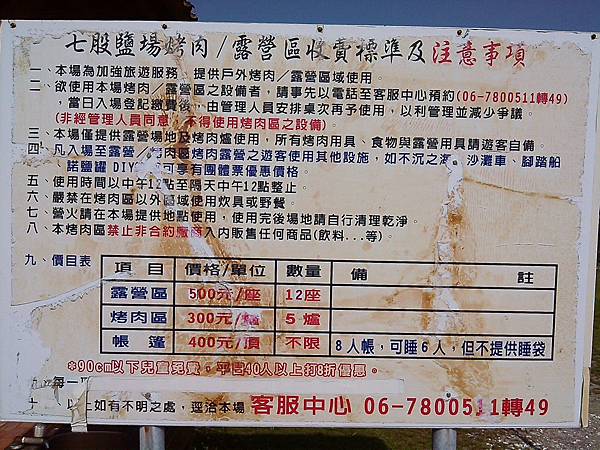 七股鹽場烤肉／露營區收費標準及注意事項
一、本場為加強旅遊服務，提供戶外烤肉／露營區域使用。
二、欲使用本場烤肉／露營區之設備者，請事先以電話至客服中心預約(06-7800511轉49)
，當日入場登記繳費後，由管理人員安排桌次再予使用，以利管理並減少爭議。
(非經管理人員同意，不得使用烤肉區之設備)。
三、本場僅提供露營場地及烤肉爐使用，所有烤肉用具、食物與露營用具請遊客自備。
四、凡入場至露營／烤肉區烤肉露營之遊客使用其他設施，如不沉之海、沙灘車、腳踏船
諾鹽罐DIY 可享有團體票優惠價格。
五、使用時間以中午12點至隔天中午12點整止。
六、嚴禁在烤肉區以外區域使用炊具或野餐。
七、營火請在本場提供地點使用，使用完後場地請自行清理乾淨。
八、本烤肉區禁止非合約廠商入內販售任何商品(飲料...等)。
九、價目表
項目 價格/單位 數量 備註
露營區 500元/座 12座
烤肉區 300元/爐 5爐
帳篷 400元/頂 不限 8人帳，可睡6人，但不提供睡袋
*90cm以下兒童免費，平日40人以上打8折優惠。
十 以上如有不明之處，逕洽本場 客服中心 06-7800511轉49